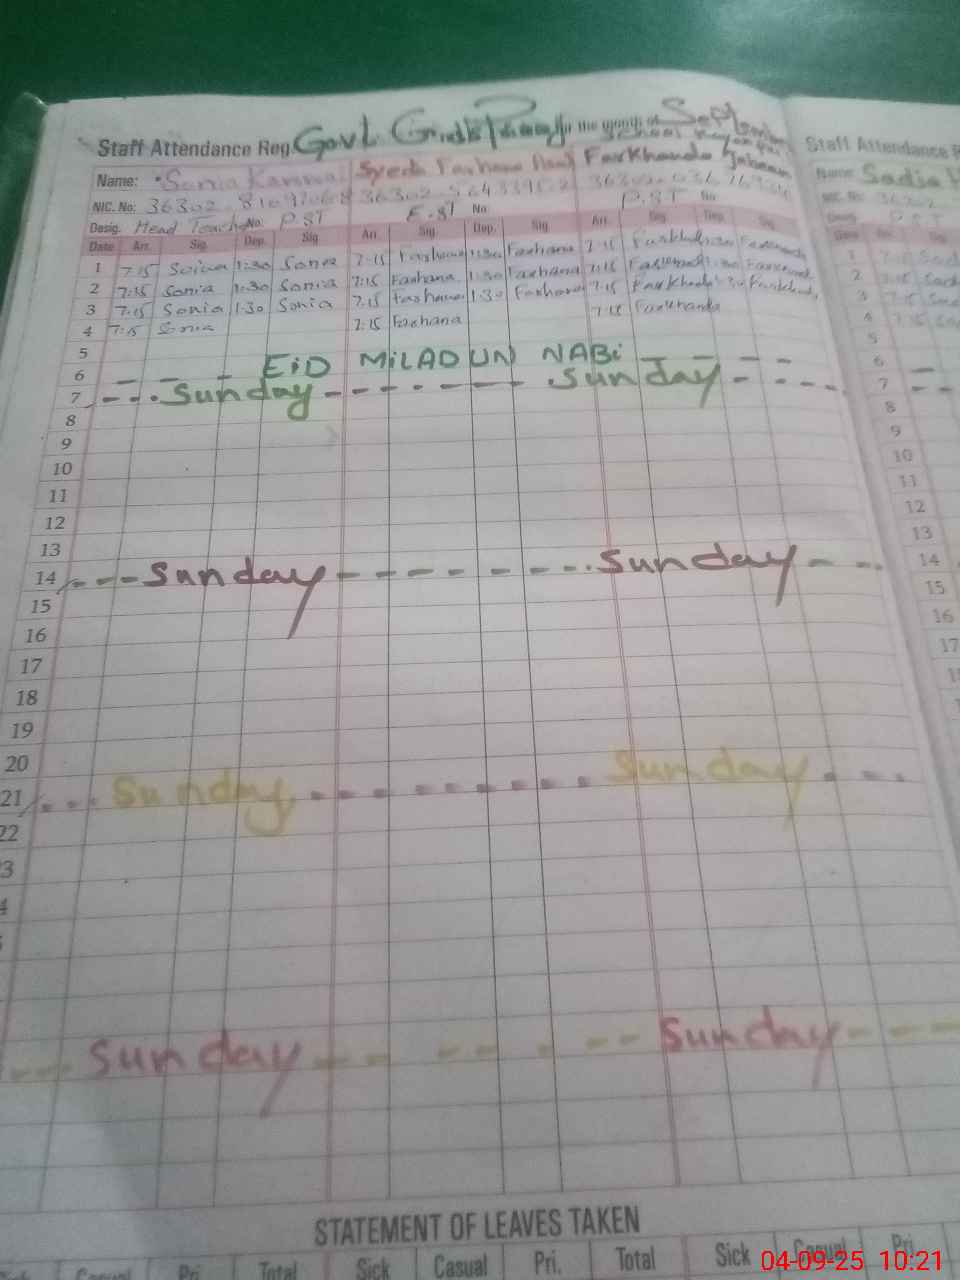 Staff Attendance Reg. Govt. Girls Primary for the month of September
School
Staff Attendance R
Name: Sonia Kanwal Syeda Farhana Farkhanda Jabeen
Name: Sadia
NIC. No: 36302 36302 36302
NIC. No: 36302
Desig. Head Teacher No: P.ST E.ST No P.ST No
Date Arr. Sig. Dep. Sig Arr. Sig. Dep. Sig Arr. Sig. Dep. Sig
1 7:15 Sonia 1:30 Sonia 7:15 Farhana 1:30 Farhana 7:15 Farkhanda 1:30 Farkhanda
2 7:15 Sonia 1:30 Sonia 7:15 Farhana 1:30 Farhana 7:15 Farkhanda 1:30 Farkhanda
3 7:15 Sonia 1:30 Sonia 7:15 Farhana 1:30 Farhana 7:15 Farkhanda 1:30 Farkhanda
4 7:15 Sonia 7:15 Farhana 7:15 Farkhanda
5
6 EiD MiLAD UN NABi
7 Sunday Sunday
8
9
10
11
12
13
14 Sunday Sunday
15
16
17
18
19
20
21 Sunday Sunday
22
3
4
Sunday Sunday
1
2
3
4
5
6
7
8
9
10
11
12
13
14
15
16
17
STATEMENT OF LEAVES TAKEN
Sick Casual Pri. Total Sick Casual Pri. Total Sick Casual Pri.
04-09-25 10:21